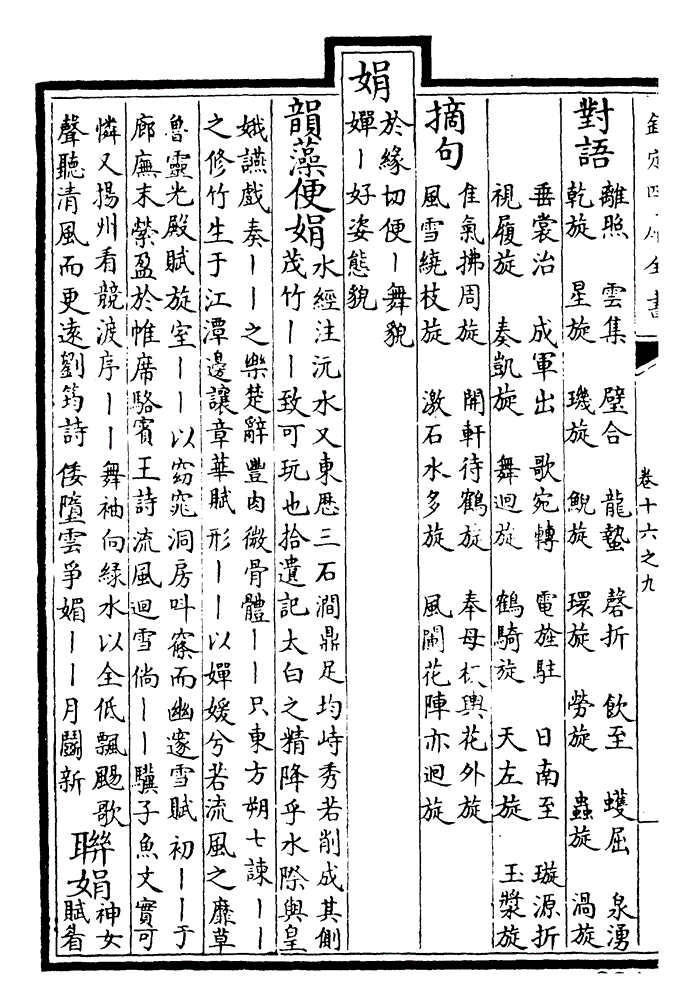 欽定四庫全書
卷十六之九
對語
離照 雲集 壁合 龍蟄 磬折 飲至 蠖屈 泉湧
乾旋 星旋 璣旋 鯢旋 環旋 勞旋 蟲旋 渦旋
垂裳治 成軍出 歌宛轉 電旌駐 日南至 璇源折
視履旋 奏凱旋 舞迴旋 鶴騎旋 天左旋 玉漿旋
摘句
隹氣拂周旋 開軒待鶴旋 奉母板輿花外旋
風雪繞枝旋 激石水多旋 風闌花陣亦迴旋
娟
於緣切便丨舞貌
嬋丨好姿態貌
韻藻便娟
水經注沅水又東歷三石澗鼎足均峙秀若削成其側
茂竹丨丨致可玩也拾遺記太白之精降乎水際與皇
娥讌戲奏丨丨之樂楚辭豐肉微骨體丨丨只東方朔七諫丨丨
之修竹生于江潭邊讓章華賦形丨丨以嬋媛兮若流風之靡草
魯靈光殿賦旋室丨丨以窈窕洞房叫窱而幽邃雪賦初丨丨于
廊廡末縈盈於帷席駱賓王詩流風迴雪倘丨丨驥子魚文實可
憐又揚州看競渡序丨丨舞袖向綠水以全低飄颺歌
聲聽清風而更遠劉筠詩倭墮雲爭媚丨丨月鬭新
聯娟
神女
賦眉